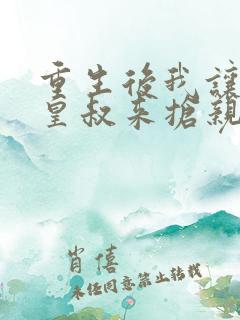 重生後我讓
皇叔来搶親
肖僖
未任同意禁止转载